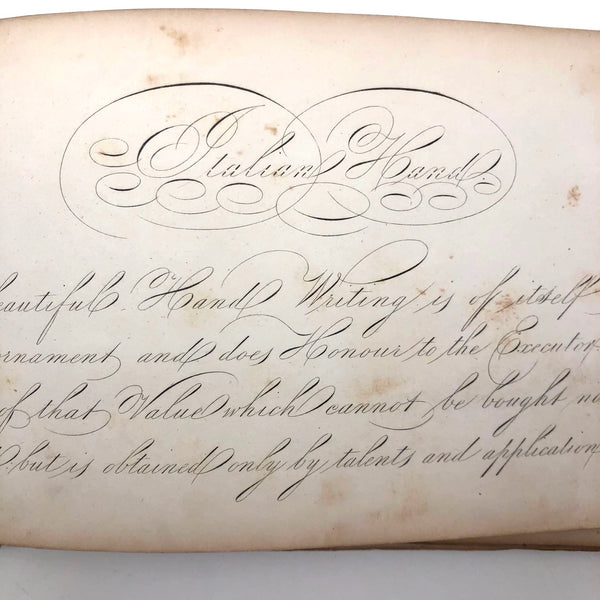 Italian Hand.
eautiful Hand Writing is of itself
ornament and does Honour to the Executor
of that Value which cannot be bought no
but is obtained only by talents and application